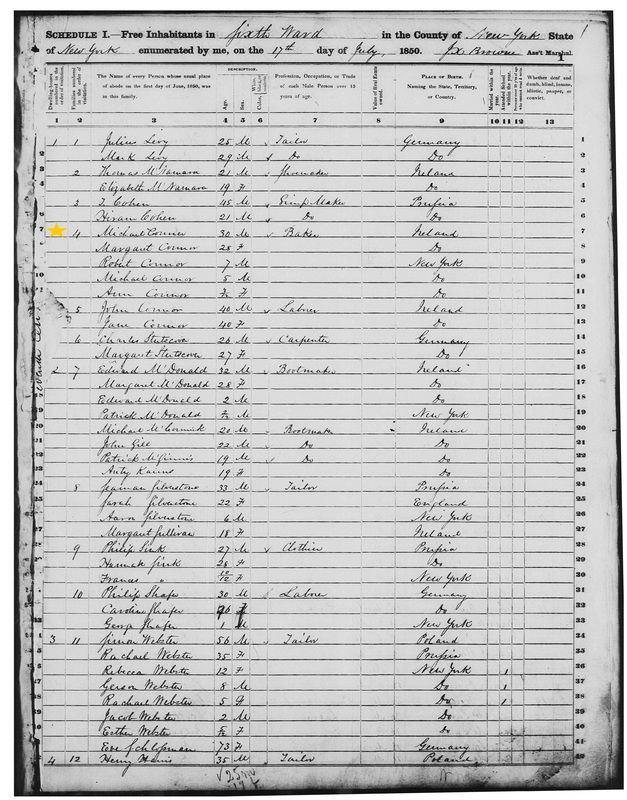 SCHEDULE I.—Free Inhabitants in Sixth Ward in the County of New York State
of New York enumerated by me, on the 17th day of July, 1850. Browne Ass't Marshal.
1
DESCRIPTION.
The Name of every Person whose usual place of abode on the first day of June, 1850, was in this family. Age. Sex. Profession, Occupation, or Trade of each Male Person over 15 years of age. Value of Real Estate owned. PLACE OF BIRTH. Naming the State, Territory, or Country. Married within the year. Attended School within the year. Whether deaf and dumb, blind, insane, idiotic, pauper, or convict.
1 2 3 4 5 6 7 8 9 10 11 12 13
1 1 Julius Levy 25 M Tailor Germany 1
2 Mark Levy 29 M Do Do 2
2 Thomas McNamara 21 M Shoemaker Ireland 3
Elizabeth McNamara 19 F Do 4
3 Cohen 45 M Gimp Maker Prussia 5
Hiram Cohen 21 M Do Do 6
7 4 Michael Connor 30 M Baker Ireland 7
Margaret Connor 28 F Do 8
Robert Connor 7 M New York 9
Michael Connor 5 M Do 10
Ann Connor F Do 11
5 John Connor 40 M Labrer Ireland 12
Jane Connor 40 F Do 13
6 Charles 26 M Carpenter Germany 14
Margaret 27 F Do 15
2 7 Edward McDonald 32 M Bootmaker Ireland 16
Margaret McDonald 28 F Do 17
Edward McDonald 2 M Do 18
Patrick McDonald M New York 19
Michael McCormick 20 M Bootmaker Ireland 20
John Gill 22 M Do Do 21
Patrick McGinnis 19 M Do Do 22
19 F Do 23
8 Silverstone 33 M Tailor Prussia 24
Sarah Silverstone 22 F England 25
Aaron Silverstone 6 M New York 26
Margaret Sullivan 18 F Ireland 27
9 Philip Sink 27 M Clothier Prussia 28
Hannah Sink 28 F Do 29
Frances " F New York 30
10 Philip Shafer 30 M Labrer Germany 31
Caroline Shafer 26 F Do 32
George Shafer 1 M New York 33
3 11 Simon Webster 56 M Tailor Poland 34
Rachael Webster 35 F Prussia 35
Rebecca Webster 12 F New York 1 36
Gerson Webster 8 M Do 1 37
Rachael Webster 5 F Do 1 38
Jacob Webster 2 M Do 39
Esther Webster F Do 40
Eve Schlossman 73 F Germany 41
4 12 Henry Harris 35 M Tailor Poland 42
25 m
17 f